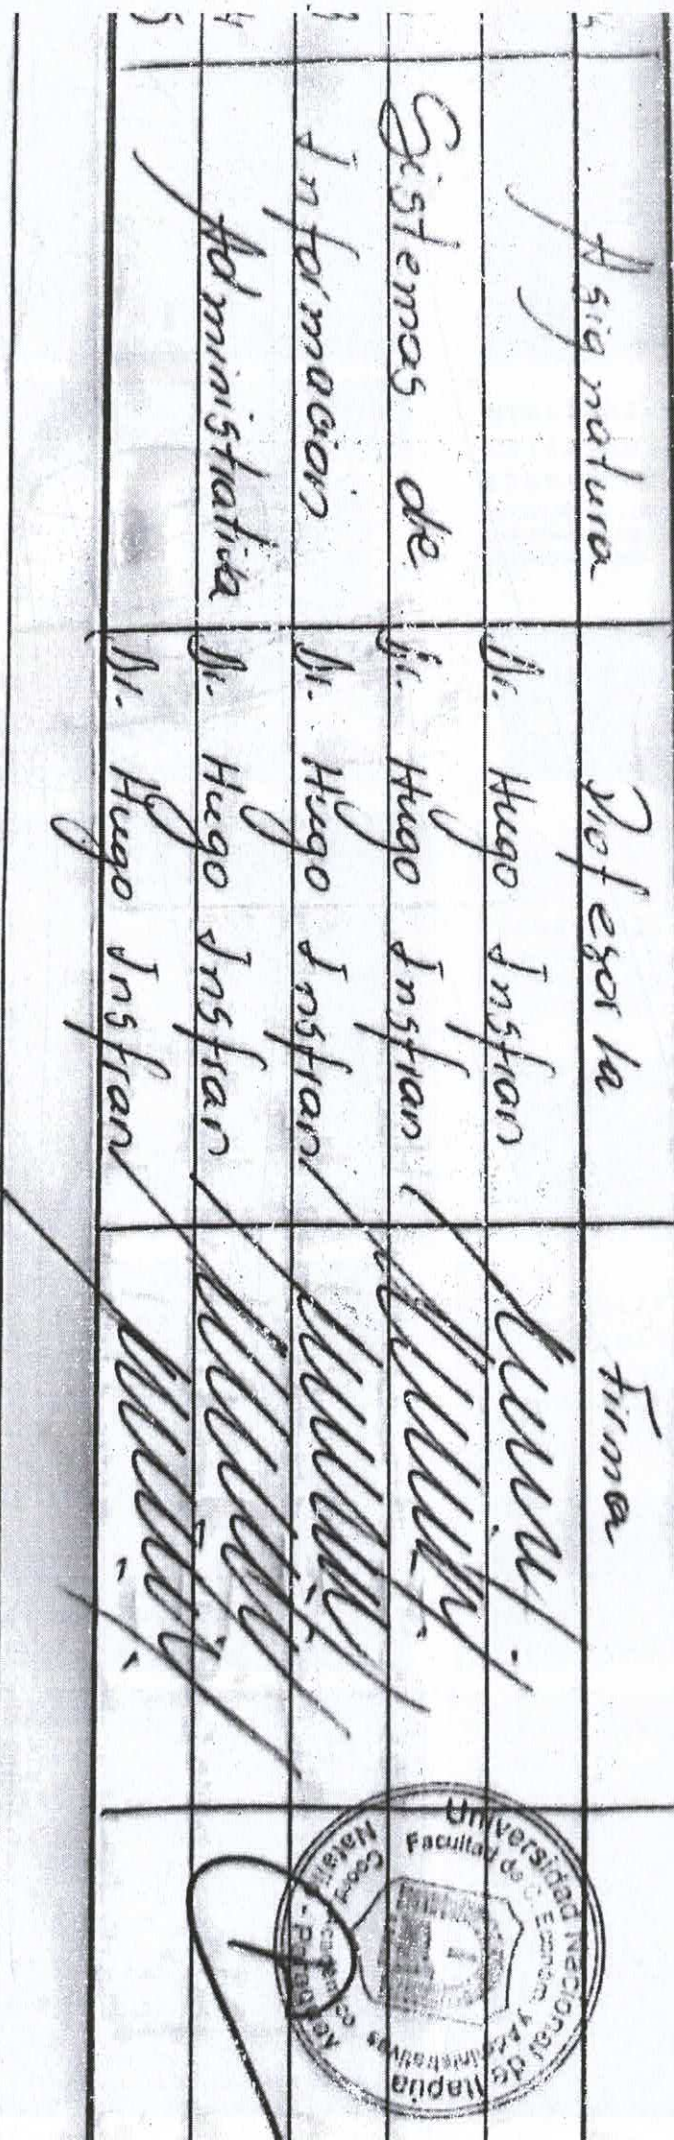 Asignatura Profesor/a Firma
Dr. Hugo Insfran
Sistemas de Dr. Hugo Insfran
Informacion Dr. Hugo Insfran
4 Administrativa Dr. Hugo Insfran
5 Dr. Hugo Insfran
Universidad Nacional de Itapúa
Facultad de C. Económ. y Administrativas
Coord. Académ
Natalio